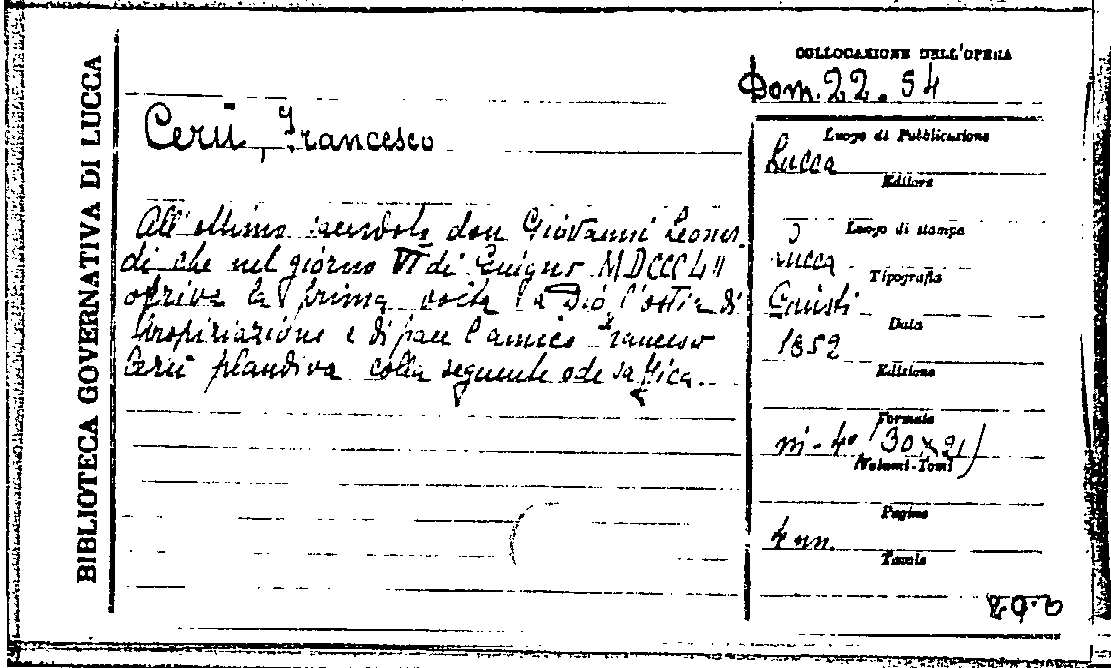 BIBLIOTECA GOVERNATIVA DI LUCCA
Cerù, Francesco
All'ottimo sacerdote don Giovanni Leonar-
di che nel giorno VI di Giugno MDCCCLII
offriva la prima volta a Dio l'ostia di
propiziazione e di pace l'amico Francesco
Cerù plaudiva colla seguente ode saffica.
COLLOCAZIONE DELL'OPERA
Dom. 22. 54
Luogo di Pubblicazione
Lucca
Editore
Luogo di stampa
Lucca
Tipografia
Giusti
Data
1852
Edizione
Formato
in-4° (30x21)
(Volumi-Tomi)
Pagine
4 nn.
Tavole